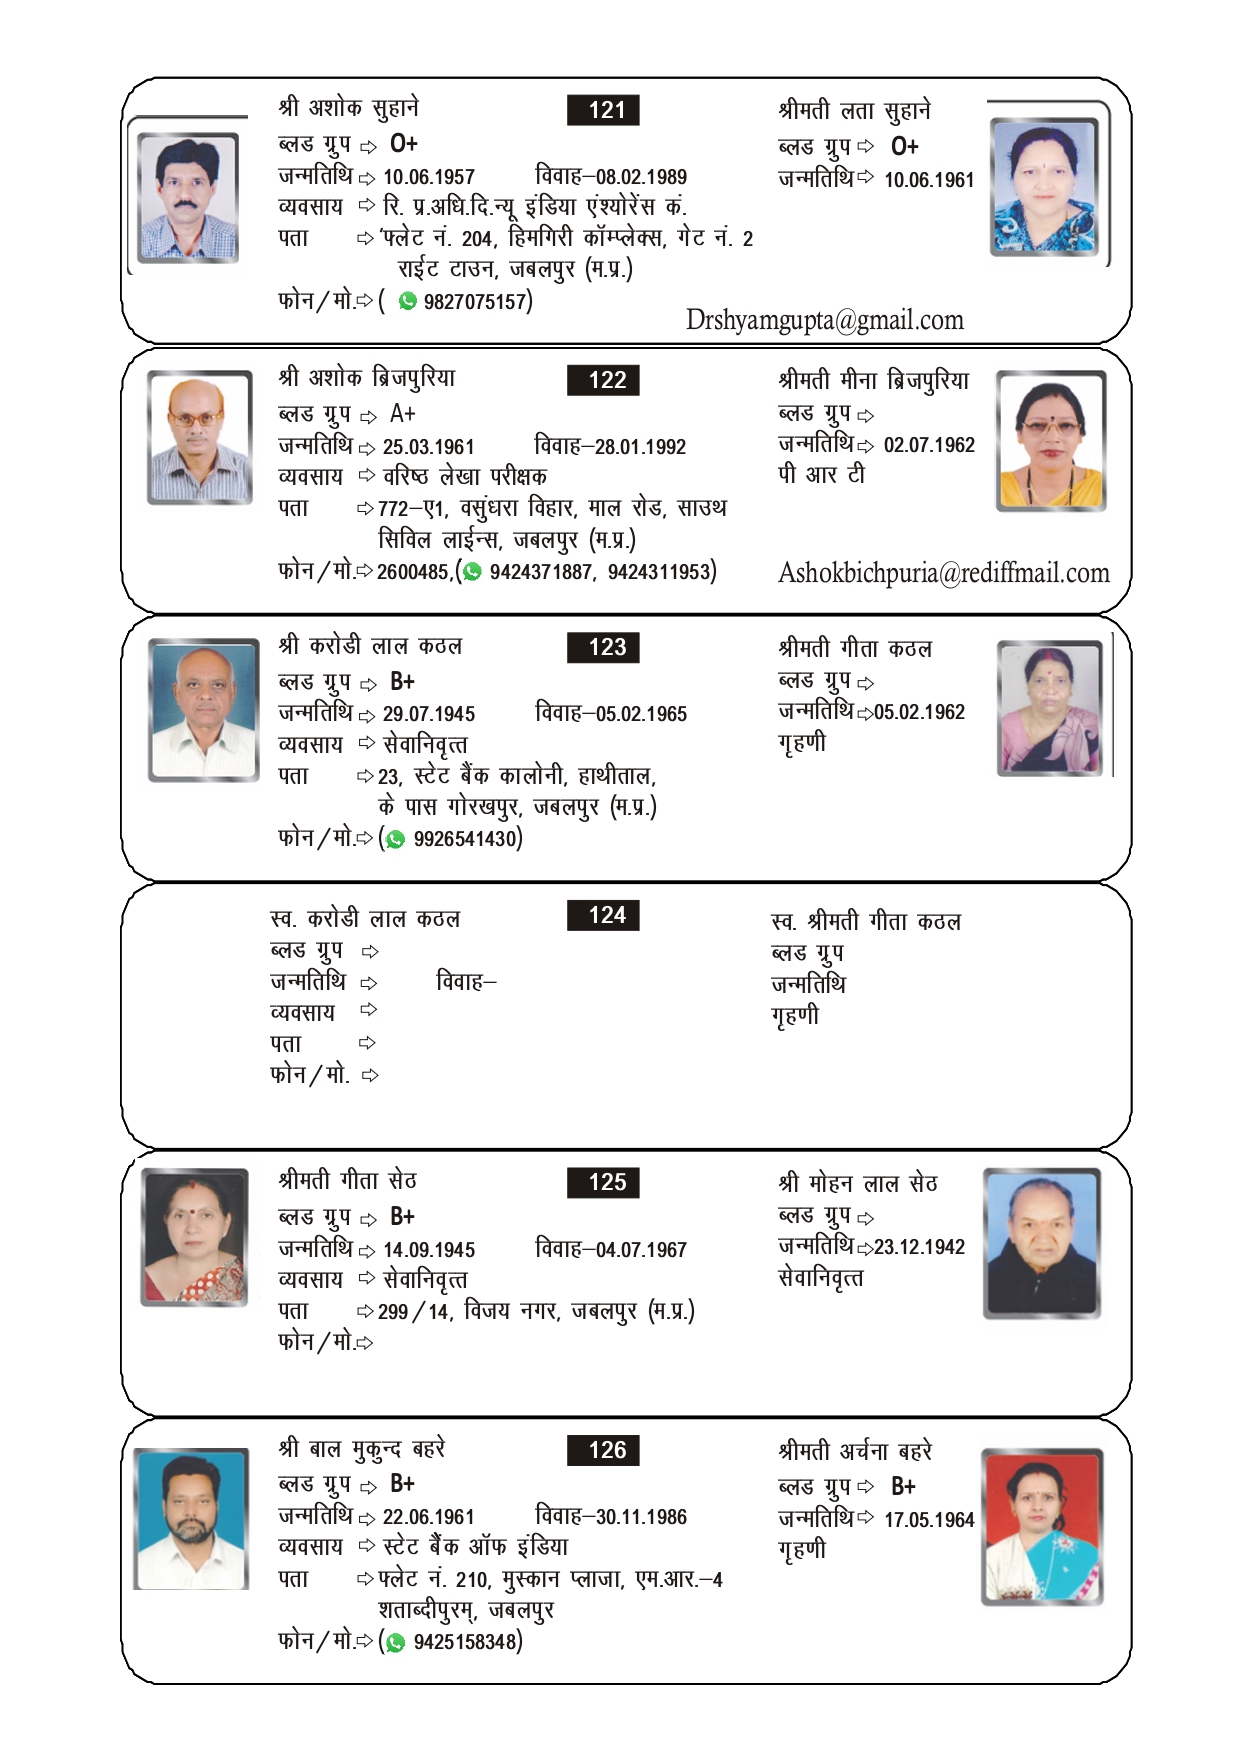 श्री अशोक सुहाने 121 श्रीमती लता सुहाने
ब्लड ग्रुप ⇨ O+ ब्लड ग्रुप ⇨ O+
जन्मतिथि ⇨ 10.06.1957 विवाह–08.02.1989 जन्मतिथि ⇨ 10.06.1961
व्यवसाय ⇨ रि. प्र.अधि.दि.न्यू इंडिया एंश्योरेंस कं.
पता ⇨ 'फ्लेट नं. 204, हिमगिरी कॉम्प्लेक्स, गेट नं. 2
राईट टाउन, जबलपुर (म.प्र.)
फोन/मो.⇨ ( 9827075157)
Drshyamgupta@gmail.com
श्री अशोक ब्रिजपुरिया 122 श्रीमती मीना ब्रिजपुरिया
ब्लड ग्रुप ⇨ A+ ब्लड ग्रुप ⇨
जन्मतिथि ⇨ 25.03.1961 विवाह–28.01.1992 जन्मतिथि ⇨ 02.07.1962
व्यवसाय ⇨ वरिष्ठ लेखा परीक्षक पी आर टी
पता ⇨ 772–ए1, वसुंधरा विहार, माल रोड, साउथ
सिविल लाईन्स, जबलपुर (म.प्र.)
फोन/मो.⇨ 2600485,( 9424371887, 9424311953) Ashokbichpuria@rediffmail.com
श्री करोडी लाल कठल 123 श्रीमती गीता कठल
ब्लड ग्रुप ⇨ B+ ब्लड ग्रुप ⇨
जन्मतिथि ⇨ 29.07.1945 विवाह–05.02.1965 जन्मतिथि ⇨05.02.1962
व्यवसाय ⇨ सेवानिवृत्त गृहणी
पता ⇨ 23, स्टेट बैंक कालोनी, हाथीताल,
के पास गोरखपुर, जबलपुर (म.प्र.)
फोन/मो.⇨ ( 9926541430)
स्व. करोडी लाल कठल 124 स्व. श्रीमती गीता कठल
ब्लड ग्रुप ⇨ ब्लड ग्रुप
जन्मतिथि ⇨ विवाह– जन्मतिथि
व्यवसाय ⇨ गृहणी
पता ⇨
फोन/मो. ⇨
श्रीमती गीता सेठ 125 श्री मोहन लाल सेठ
ब्लड ग्रुप ⇨ B+ ब्लड ग्रुप ⇨
जन्मतिथि ⇨ 14.09.1945 विवाह–04.07.1967 जन्मतिथि ⇨23.12.1942
व्यवसाय ⇨ सेवानिवृत्त सेवानिवृत्त
पता ⇨ 299/14, विजय नगर, जबलपुर (म.प्र.)
फोन/मो.⇨
श्री बाल मुकुन्द बहरे 126 श्रीमती अर्चना बहरे
ब्लड ग्रुप ⇨ B+ ब्लड ग्रुप ⇨ B+
जन्मतिथि ⇨ 22.06.1961 विवाह–30.11.1986 जन्मतिथि ⇨ 17.05.1964
व्यवसाय ⇨ स्टेट बैंक ऑफ इंडिया गृहणी
पता ⇨ फ्लेट नं. 210, मुस्कान प्लाजा, एम.आर.–4
शताब्दीपुरम्, जबलपुर
फोन/मो.⇨ ( 9425158348)